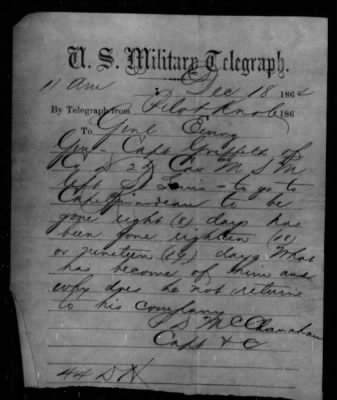 U. S. Military Telegraph.
11 Am Dec 18 1864
By Telegraph from Pilot Knob 186
To Genl Ewing
Genl Capt Griffith of
Co D 2d Cav M S M
left St Louis to go to
Cape Girardeau to be
gone eight (8) days has
been gone eighteen (18)
or nineteen (19) days What
has become of him and
why does he not return
to his company
S McClanahan
Capt & C
44 D H